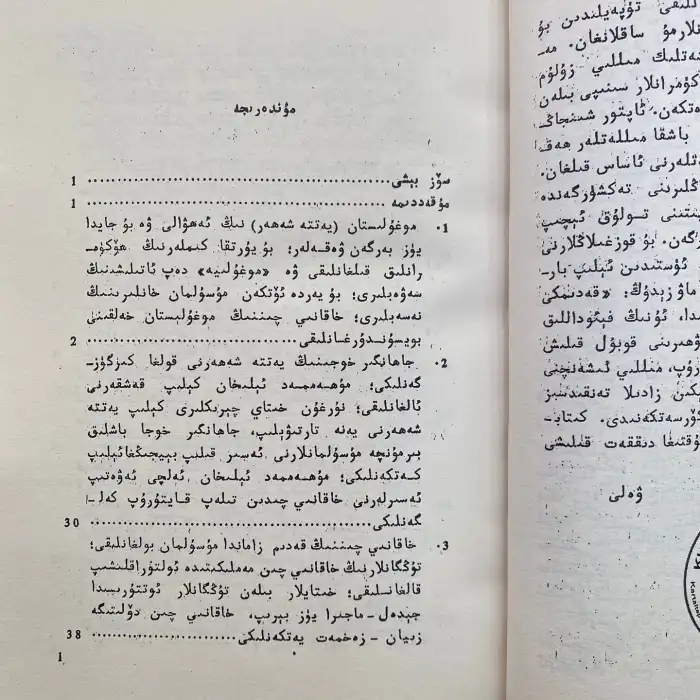 مۇندەرىجە
سۆز بېشى ........ 1
مۇقەددىمە ........ 1
1. موغۇلىستان (يەتتە شەھەر) نىڭ ئەھۋالى ۋە بۇ جايدا
يۈز بەرگەن ۋەقەلەر؛ بۇ يۇرتقا كىملەرنىڭ ھۆكۈم-
رانلىق قىلغانلىقى ۋە «موغۇلىيە» دەپ ئاتىلىشىنىڭ
سەۋەبلىرى؛ بۇ يەردە ئۆتكەن مۇسۇلمان خانلىرىنىڭ
نەسەبلىرى؛ خاقانىي چىننىڭ موغۇلىستان خەلقىنى
بويسۇندۇرغانلىقى ........ 2
2. جاھانگىر خوجىنىڭ يەتتە شەھەرنى قولغا كىرگۈز-
گەنلىكى؛ مۇھەممەد ئېلىخان كېلىپ قەشقەرنى
ئالغانلىقى؛ نۇرغۇن خىتاي چېرىكلىرى كېلىپ يەتتە
شەھەرنى يەنە تارتىۋېلىپ، جاھانگىر خوجا باشلىق
بىرمۇنچە مۇسۇلمانلارنى ئەسىر قىلىپ بېيجىڭغا ئېلىپ
كەتكەنلىكى؛ مۇھەممەد ئېلىخان ئەلچى ئەۋەتىپ
ئەسىرلەرنى خاقانىي چىندىن تىلەپ قايتۇرۇپ كەل-
گەنلىكى ........ 30
3. خاقانىي چىننىڭ قەدىم زاماندا مۇسۇلمان بولغانلىقى؛
تۇڭگانلارنىڭ خاقانىي چىن مەملىكىتىدە ئولتۇراقلىشىپ
قالغانلىقى؛ خىتايلار بىلەن تۇڭگانلار ئوتتۇرىسىدا
جېدەل-ماجىرا يۈز بېرىپ، خاقانىي چىن دۆلىتىگە
زىيان-زەخمەت يەتكەنلىكى ........ 38
1
تۇپەيلىدىن بۇ
ساقلانغان. مە-
مىللىي زۇلۇم
سىنىپى بىلەن
ئاپتور شىنجاڭ-
باشقا مىللەتلەر ھەق-
ئاساس قىلغان.
تەكشۈرگەندە
تولۇق ئېچىپ
بۇ قوزغىلاڭلارنى
ئۈستىدىن ئېلىپ بار-
ماۋ زېدۇڭ: «قەدىمكى
ئۇنىڭ فېئوداللىق
قوبۇل قىلىش
مىللىي ئىشەنچنى
زادىلا تەنقىدسىز
كىتاب-
دىققەت قىلىشى
ۋەلى